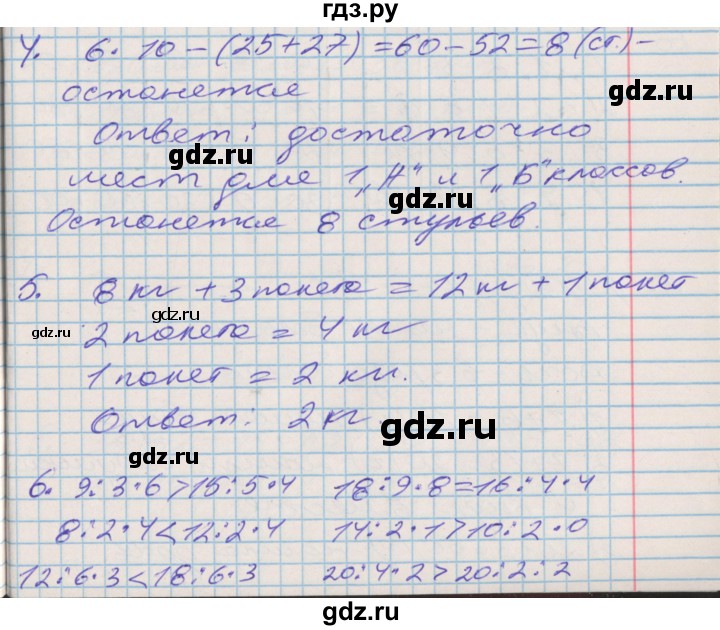 гдз.ру
4. 6·10-(25+27)=60-52=8(ст.)-
gdz.ru
останется
gdz.ru
Ответ: достаточно
gdz.ru
мест для 1„А" и 1„Б"классов.
Останется 8 стульев.
5. 8 кг + 3 пакета = 12 кг + 1 пакет
gdz.ru
gdz.ru
2 пакета = 4 кг
1 пакет = 2 кг.
Ответ: 2 кг
gdz.ru
gdz.ru
6. 9:3·6>15:5·4 18:9·8=16:4·4
gdz.ru
8:2·4<12:2·4 14:2·1>10:2·0
12:6·3<18:6·3 20:4·2>20:2:2
gdz.ru